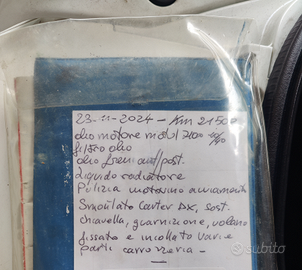 23-11-2024 - Km 21500
olio motore motul 7100 10/40
filtro olio
olio freni ant/post.
Liquido radiatore
Pulizia motorino avviamento
Smontato Carter Dx, sost.
chiavella, guarnizione, volano
fissato e incollato varie
parti carrozzeria -
subito